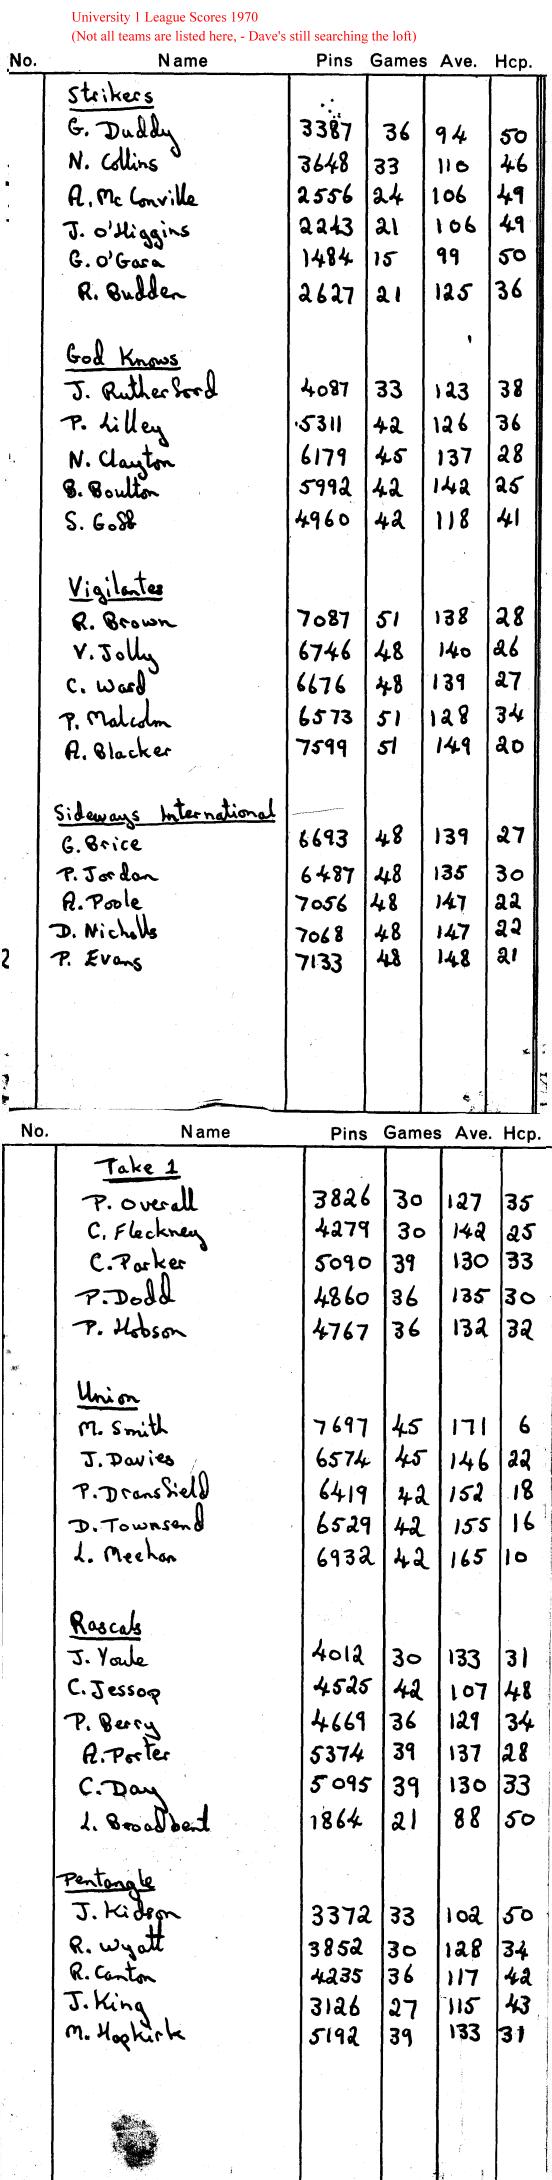 University 1 League Scores 1970
(Not all teams are listed here, - Dave's still searching the loft)
No. Name Pins Games Ave. Hcp.
Strikers
G. Duddy 3387 36 94 50
N. Collins 3648 33 110 46
A. Mc Conville 2556 24 106 49
J. O'Higgins 2243 21 106 49
G. O'Gara 1484 15 99 50
R. Budden 2627 21 125 36
God Knows
J. Rutherford 4087 33 123 38
P. Lilley 5311 42 126 36
N. Clayton 6179 45 137 28
B. Boulton 5992 42 142 25
S. Goff 4960 42 118 41
Vigilantes
R. Brown 7087 51 138 28
V. Jolly 6746 48 140 26
C. Ward 6676 48 139 27
P. Malcolm 6573 51 128 34
A. Blacker 7599 51 149 20
Sideways International
G. Brice 6693 48 139 27
P. Jordan 6487 48 135 30
A. Poole 7056 48 147 22
D. Nicholls 7068 48 147 22
2 P. Evans 7133 48 148 21
No. Name Pins Games Ave. Hcp.
Take 1
P. Overall 3826 30 127 35
C. Fleckney 4279 30 142 25
C. Parker 5090 39 130 33
P. Dodd 4860 36 135 30
P. Hobson 4767 36 132 32
Union
M. Smith 7697 45 171 6
J. Davies 6574 45 146 22
P. Dransfield 6419 42 152 18
D. Townsend 6529 42 155 16
L. Meehan 6932 42 165 10
Rascals
J. Youle 4012 30 133 31
C. Jessop 4525 42 107 48
P. Berry 4669 36 129 34
A. Porter 5374 39 137 28
C. Day 5095 39 130 33
L. Broadbent 1864 21 88 50
Pentangle
J. Kidson 3372 33 102 50
R. Wyatt 3852 30 128 34
R. Canton 4235 36 117 42
J. King 3126 27 115 43
M. Hopkirk 5192 39 133 31